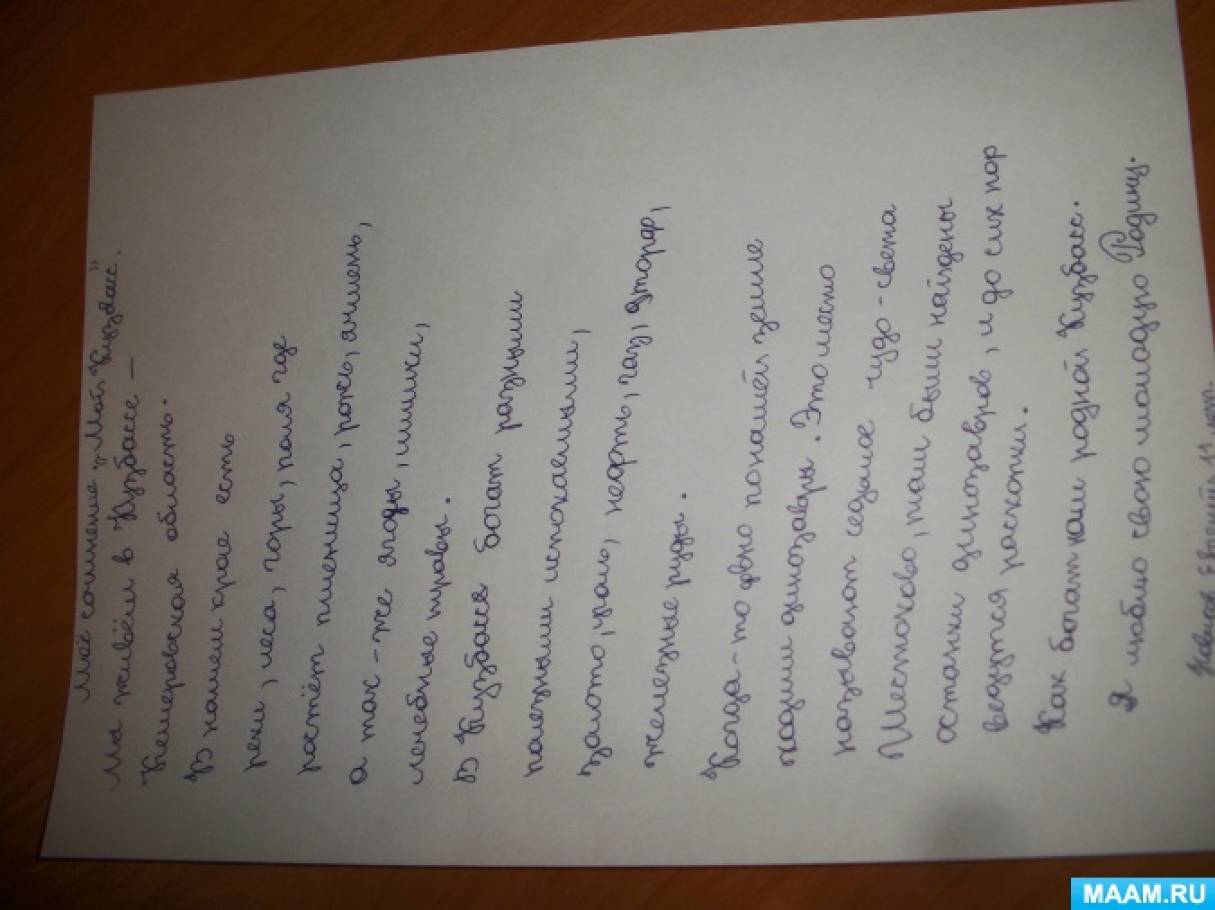 Моё сочинение "Мой Кузбасс".
Мы живём в Кузбассе —
Кемеровская область.
В нашем крае есть
реки, леса, горы, поля где
ростёт пшеница, рожь, ячмень,
а так-же ягоды, шишки,
лечебные травы.
В Кузбассе богат разными
полезными ископаемыми,
золото, уголь, нефть, газ, торф,
железные руды.
Когда-то давно по нашей земле
ходили динозавры. Это место
называют седьмое чудо-света
Шестоково, там были найдены
останки динозавров, и до сих пор
ведутся раскопки.
Как богат наш родной Кузбасс.
Я люблю свою молодую Родину.
11 лет.
MAAM.RU